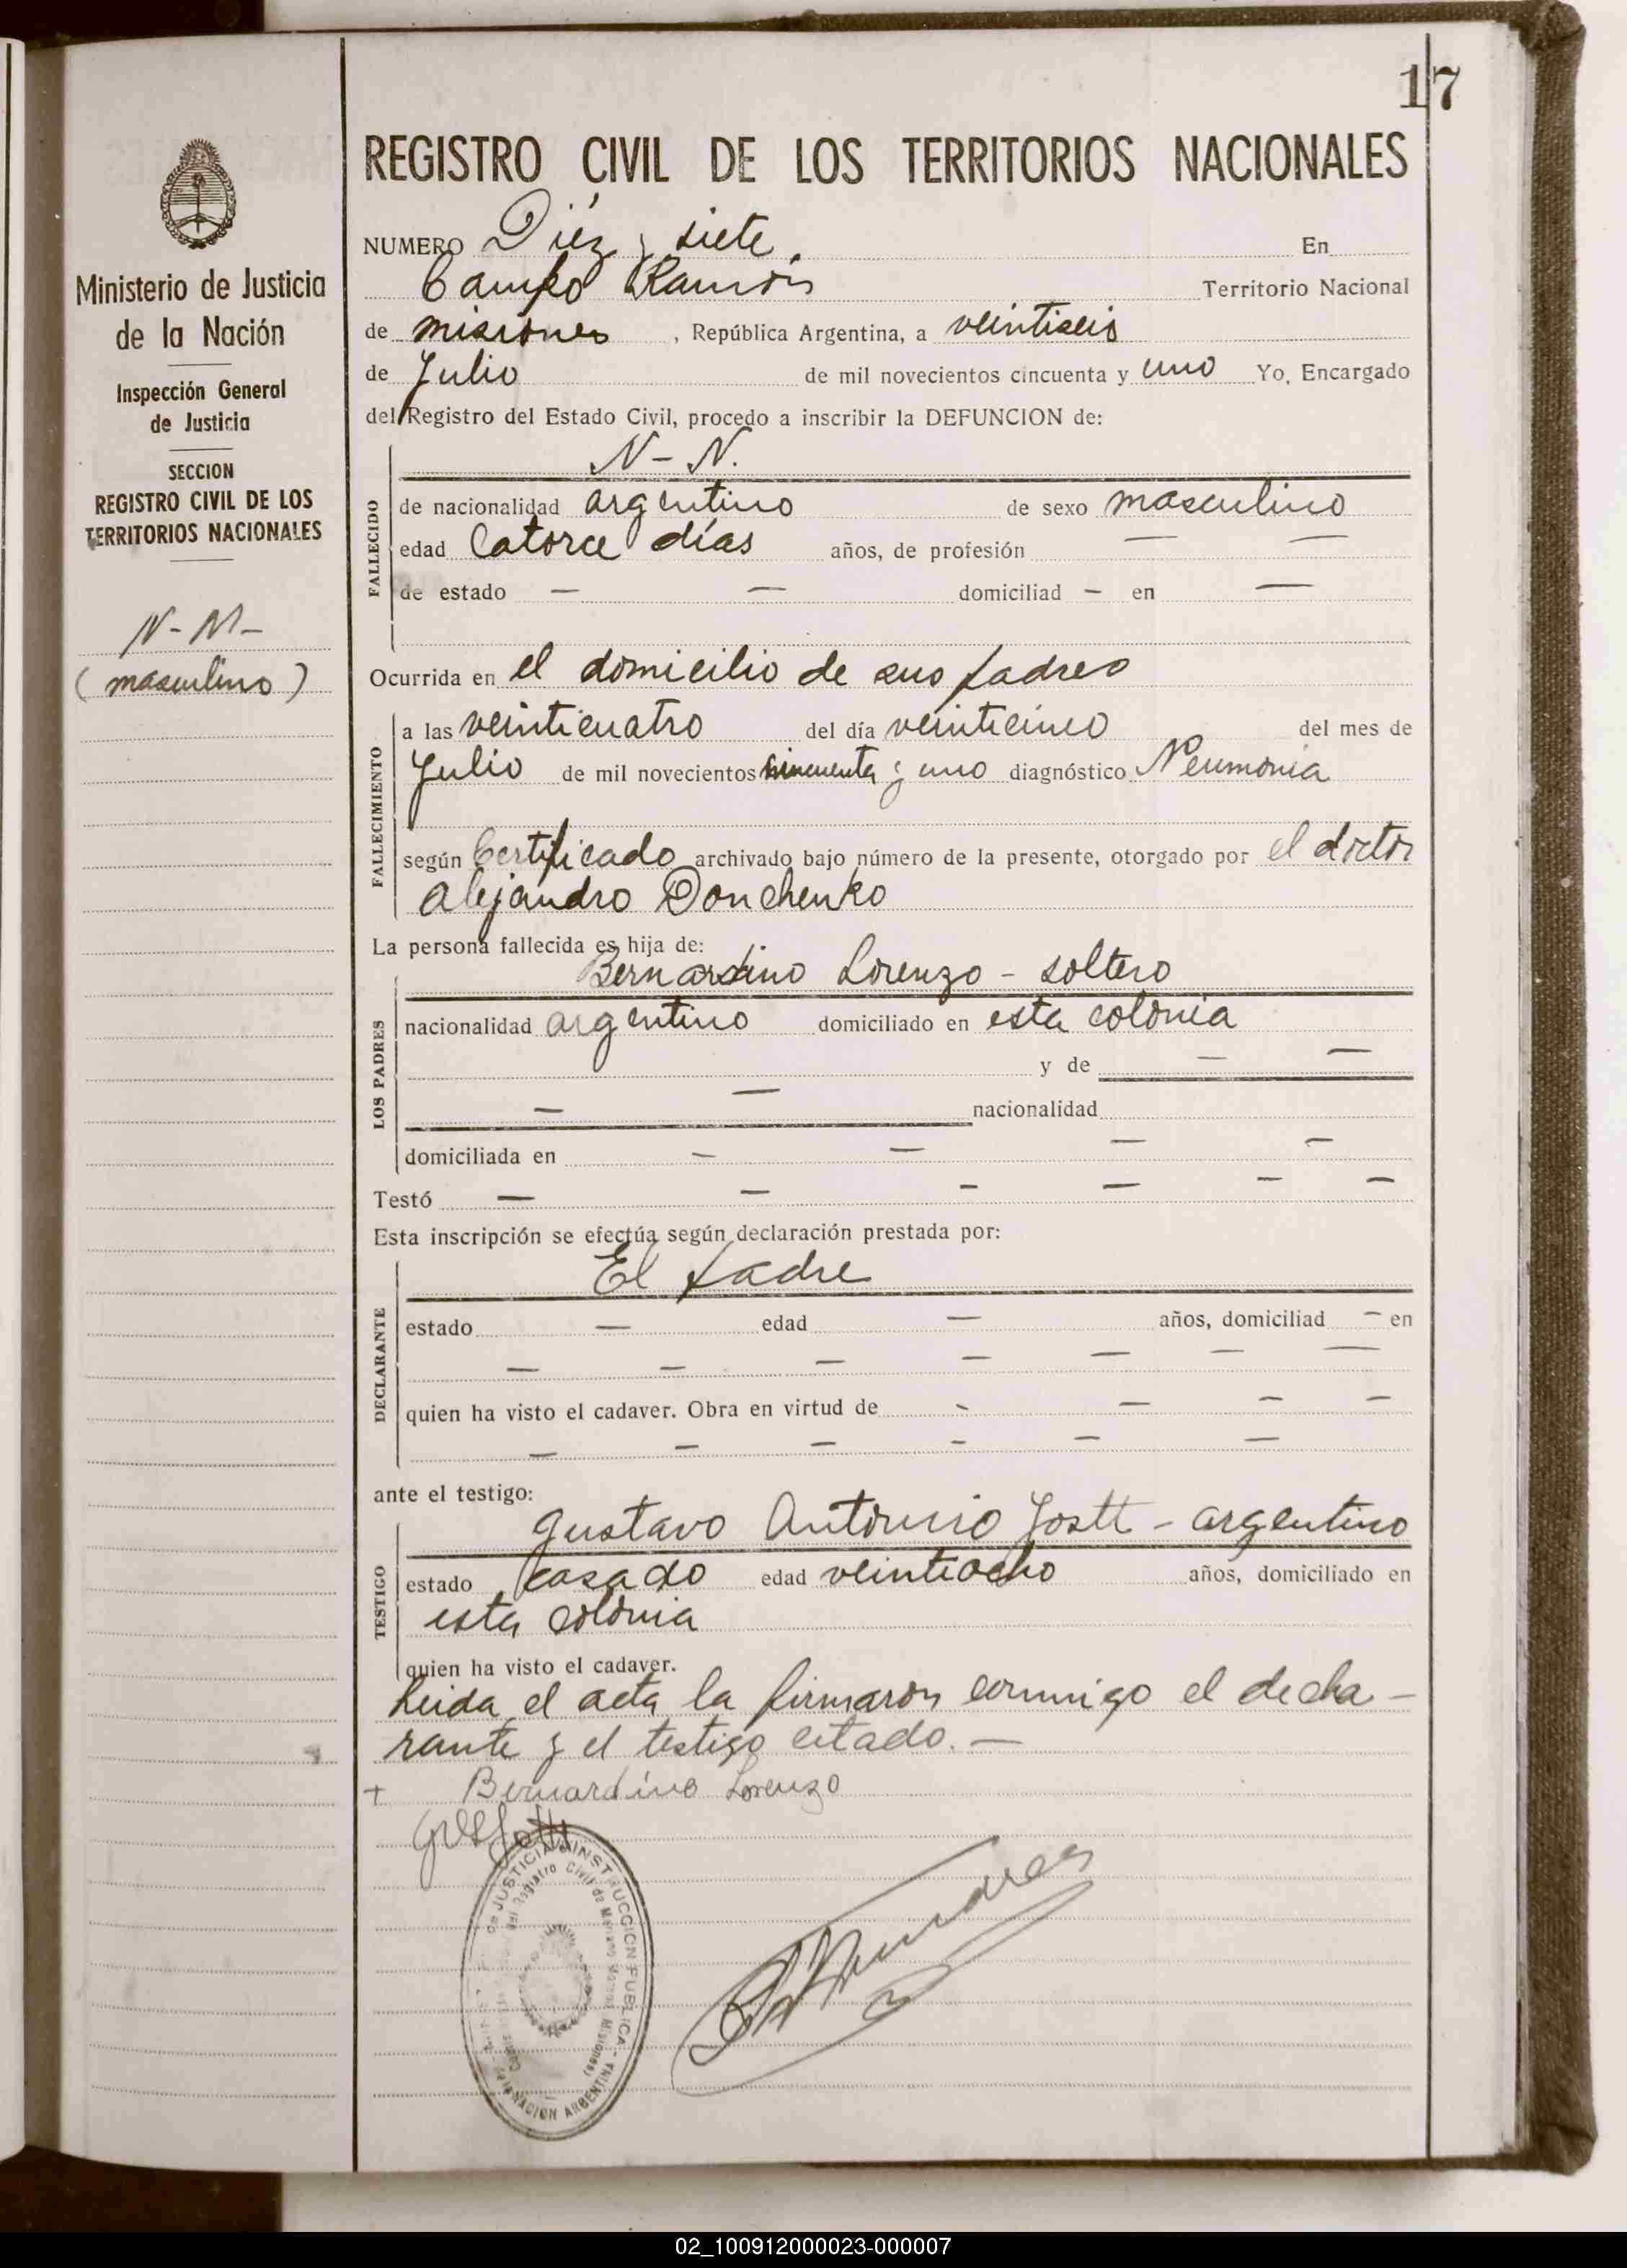 17
REGISTRO CIVIL DE LOS TERRITORIOS NACIONALES
Ministerio de Justicia
de la Nación
Inspección General
de Justicia
SECCION
REGISTRO CIVIL DE LOS
TERRITORIOS NACIONALES
N-N-
(masculino)
NUMERO Diéz y siete En
Campo Ramón Territorio Nacional
de misiones, República Argentina, a veintiseis
de Julio de mil novecientos cincuenta y uno Yo, Encargado
del Registro del Estado Civil, procedo a inscribir la DEFUNCION de:
N-N.
FALLECIDO
de nacionalidad argentino de sexo masculino
edad Catorce días años, de profesión — —
de estado — — domiciliad - en —
Ocurrida en el domicilio de sus padres
FALLECIMIENTO
a las veinticuatro del día veinticinco del mes de
Julio de mil novecientos cincuenta y uno diagnóstico Neumonia
según Certificado archivado bajo número de la presente, otorgado por el doctor
Alejandro Donchenko
La persona fallecida es hija de:
Bernardino Lorenzo - soltero
LOS PADRES
nacionalidad argentino domiciliado en esta colonia
y de — —
— — nacionalidad
domiciliada en — — — —
Testó — — — — — —
Esta inscripción se efectúa según declaración prestada por:
El padre
DECLARANTE
estado — edad — años, domiciliad - en
— — — — — — —
quien ha visto el cadaver. Obra en virtud de - — — —
— — — - — —
ante el testigo:
Gustavo Antonio Jostt - argentino
TESTIGO
estado casado edad veintiocho años, domiciliado en
esta colonia
quien ha visto el cadaver.
Leida el acta la firmaron conmigo el decla-
rante y el testigo citado.—
+ Bernardino Lorenzo
JUSTICIA INSTRUCCION PUBLICA
NACION ARGENTINA
Registro Civil de
02_100912000023-000007